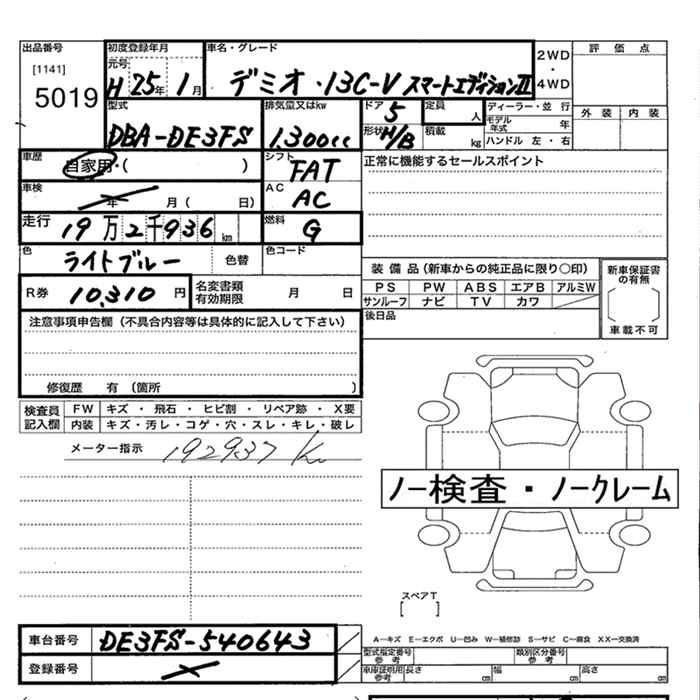 出品番号 初度登録年月 車名・グレード 2WD ・ 4WD 評価点
[1141] 5019 元号 H 25年 1月 デミオ・13C-V スマートエディションⅡ 外装 内装
型式 排気量又はkw ドア 5 定員 人 ディーラー・並行
DBA-DE3FS 1.300cc 形状 H/B 積載 kg モデル年式 年
ハンドル 左・右
車歴 自家用・( ) シフト FAT 正常に機能するセールスポイント
車検 年 月( 日) AC AC
走行 19万2千936km 燃料 G
色 ライトブルー 色替 色コード
R券 10,310円 名変書類有効期限 月 日
装備品(新車からの純正品に限り○印) 新車保証書の有無
PS PW ABS エアB アルミW
サンルーフ ナビ TV カワ 車載不可
後日品
注意事項申告欄(不具合内容等は具体的に記入して下さい)
修復歴 有(箇所 )
検査員記入欄 FW キズ・飛石・ヒビ割・リペア跡・X要
内装 キズ・汚レ・コゲ・穴・スレ・キレ・破レ
メーター指示 192937 K
ノー検査・ノークレーム
スペアT
[ ]
A―キズ E―エクボ U―凹み W―補修跡 S―サビ C―腐食 XX―交換済
車台番号 DE3FS-540643 型式指定番号 参考 類別区分番号 参考
登録番号 車庫証明用 参考 長さ cm 幅 cm 高さ cm